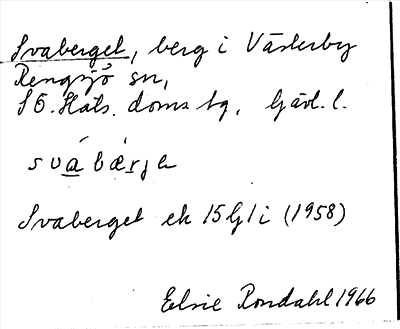 Svaberget, berg i Västerby
Rengsjö sn,
SÖ. Häls. doms bg. Gävl. l.
svabærje
Svaberget ek 15G1i (1958)
Elsie Rondahl 1966